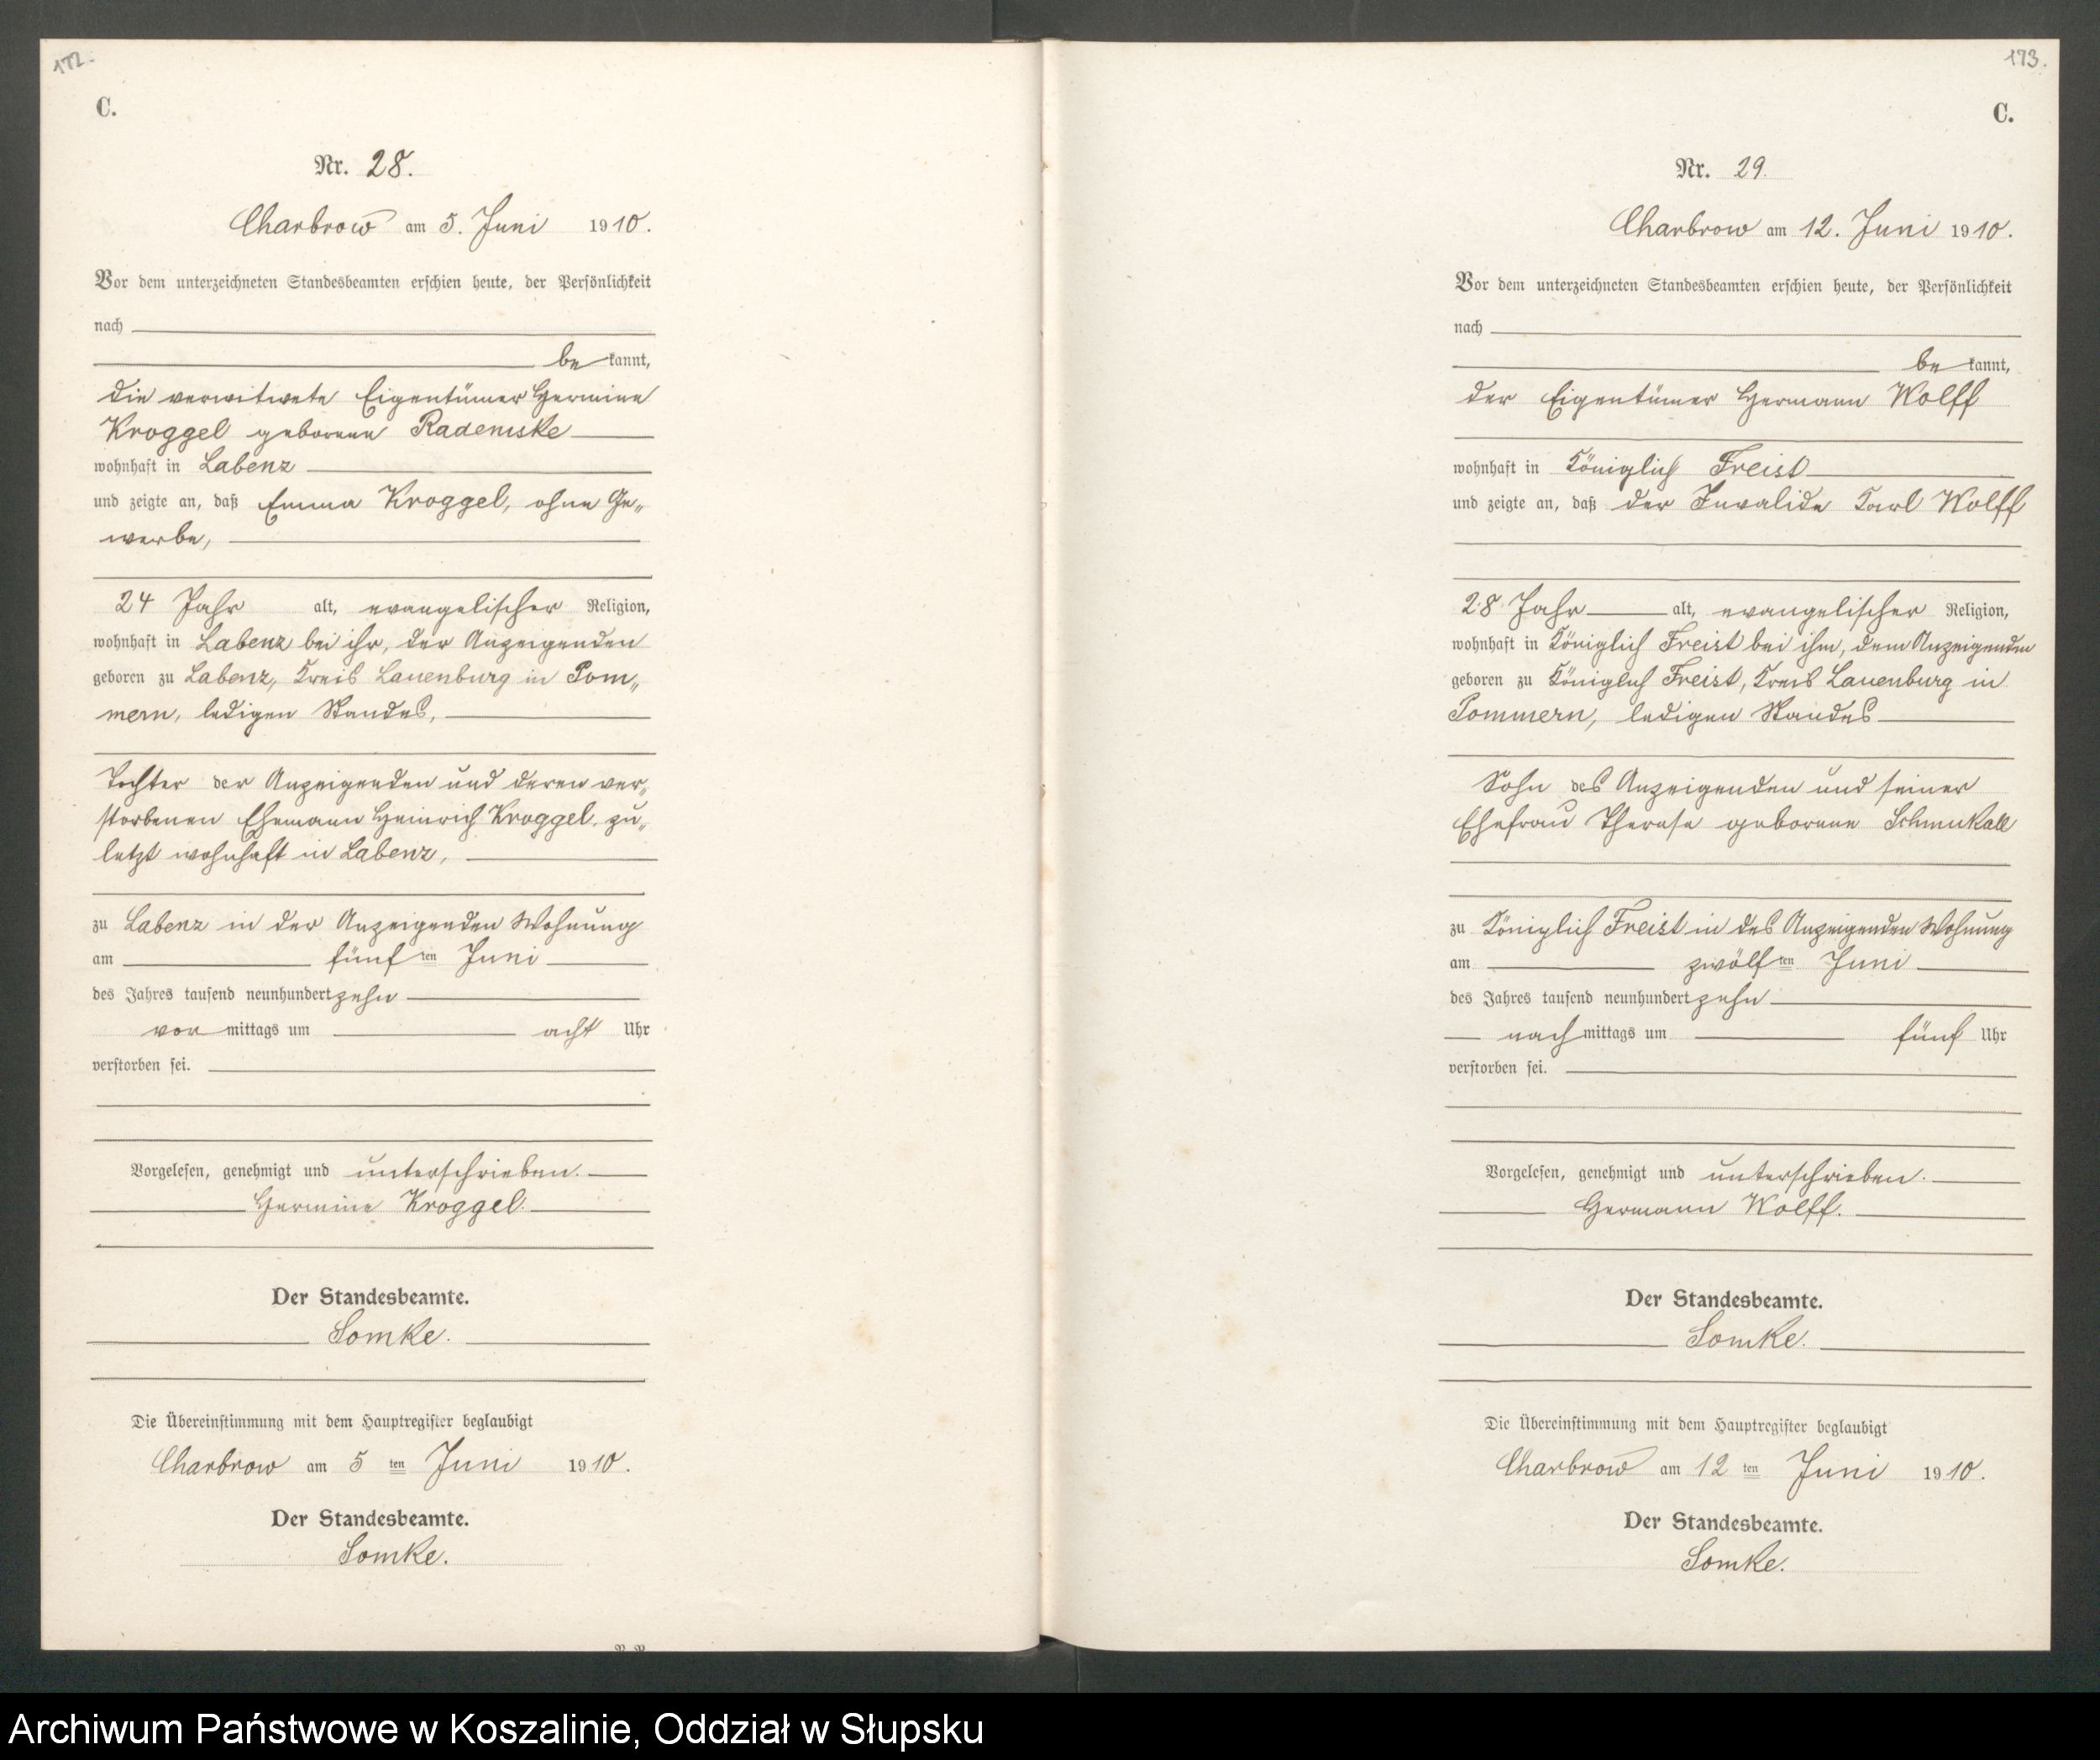 172.
C.
Nr. 28.
Charbrow am 5. Juni 1910.
Vor dem unterzeichneten Standesbeamten erschien heute, der Persönlichkeit
nach
be kannt,
die verwitwete Eigentümer Hermine
Kroggel geborene Rademske
wohnhaft in Labenz
und zeigte an, daß Emma Kroggel, ohne Ge„
werbe,
24 Jahr alt, evangelischer Religion,
wohnhaft in Labenz bei ihr, der Anzeigenden
geboren zu Labenz, Kreis Lauenburg in Pom„
mern, ledigen Standes,
Tochter der Anzeigenden und deren ver„
storbenen Ehemann Heinrich Kroggel, zu„
letzt wohnhaft in Labenz,
zu Labenz in der Anzeigenden Wohnung
am fünf ten Juni
des Jahres tausend neunhundert zehn
vor mittags um acht Uhr
verstorben sei.
Vorgelesen, genehmigt und unterschrieben.
Hermine Kroggel.
Der Standesbeamte.
Somke.
Die Übereinstimmung mit dem Hauptregister beglaubigt
Charbrow am 5 ten Juni 1910.
Der Standesbeamte.
Somke.
173.
C.
Nr. 29.
Charbrow am 12. Juni 1910.
Vor dem unterzeichneten Standesbeamten erschien heute, der Persönlichkeit
nach
be kannt,
der Eigentümer Hermann Wolff
wohnhaft in Königlich Freist
und zeigte an, daß der Invalide Karl Wolff
28 Jahr alt, evangelischer Religion,
wohnhaft in Königlich Freist bei ihm, dem Anzeigenden
geboren zu Königlich Freist, Kreis Lauenburg in
Pommern, ledigen Standes
Sohn des Anzeigenden und seiner
Ehefrau Therese geborene Schmukall
zu Königlich Freist in des Anzeigenden Wohnung
am zwölf ten Juni
des Jahres tausend neunhundert zehn
nach mittags um fünf Uhr
verstorben sei.
Vorgelesen, genehmigt und unterschrieben.
Hermann Wolff.
Der Standesbeamte.
Somke.
Die Übereinstimmung mit dem Hauptregister beglaubigt
Charbrow am 12 ten Juni 1910.
Der Standesbeamte.
Somke.
Archiwum Państwowe w Koszalinie, Oddział w Słupsku